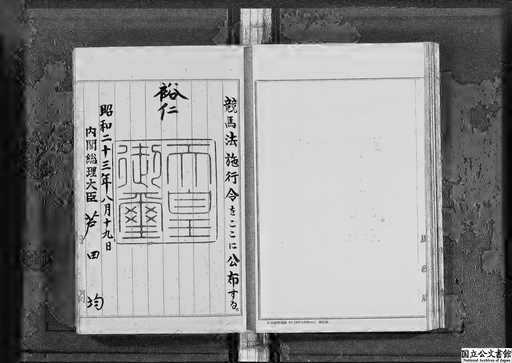 競馬法施行令をここに公布する。
裕仁
天皇御璽
昭和二十三年八月十九日
内閣総理大臣 芦田均
国立公文書館
National Archives of Japan